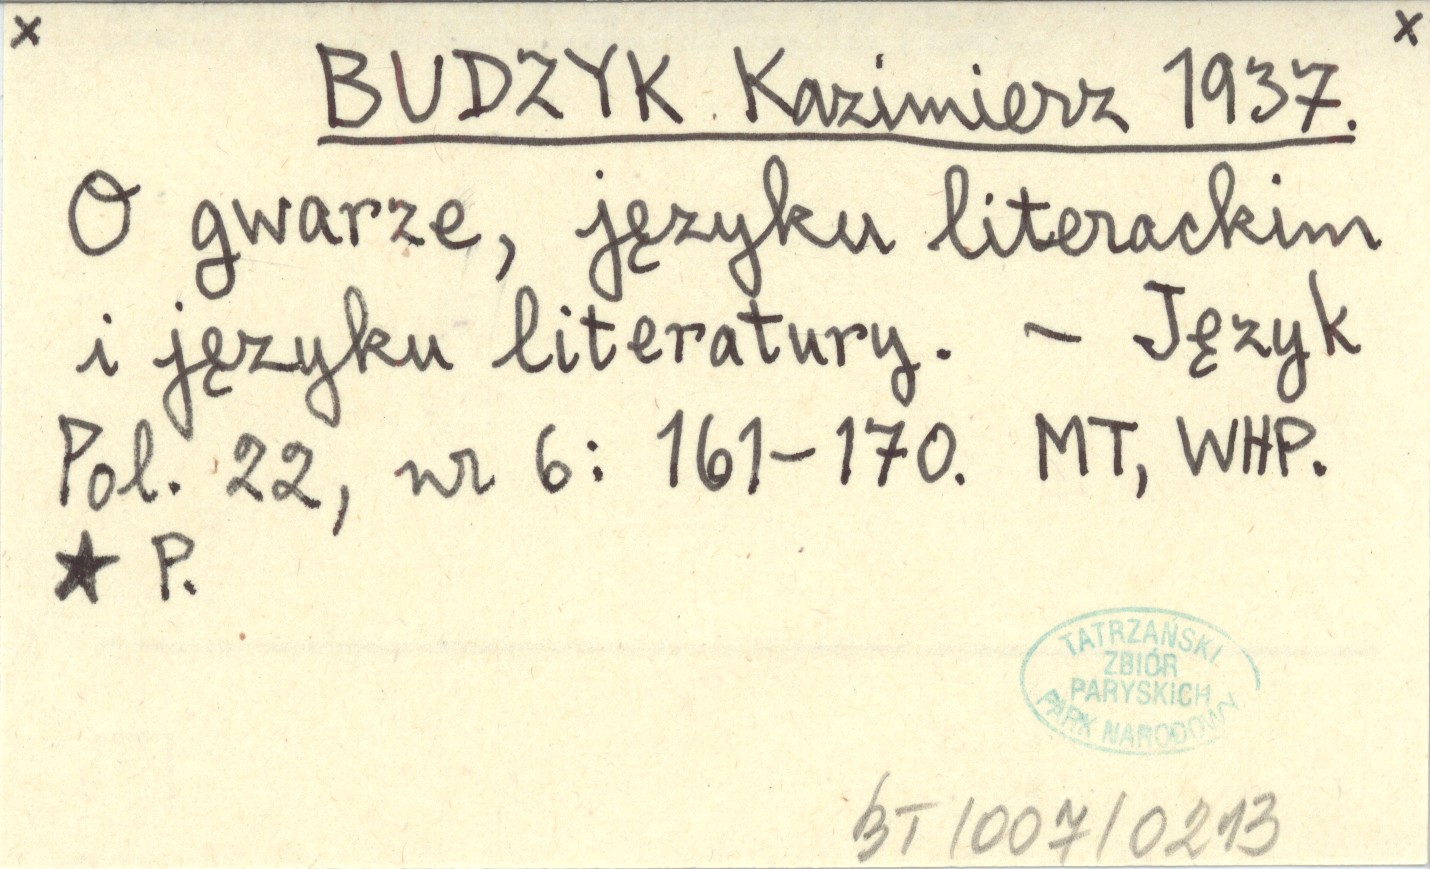 x x
BUDZYK Kazimierz 1937.
O gwarze, języku literackim
i języku literatury. – Język
Pol. 22, nr 6: 161–170. MT, WHP.
★ P.
TATRZAŃSKI
ZBIÓR
PARYSKICH
PARK NARODOWY
BT/007/0213